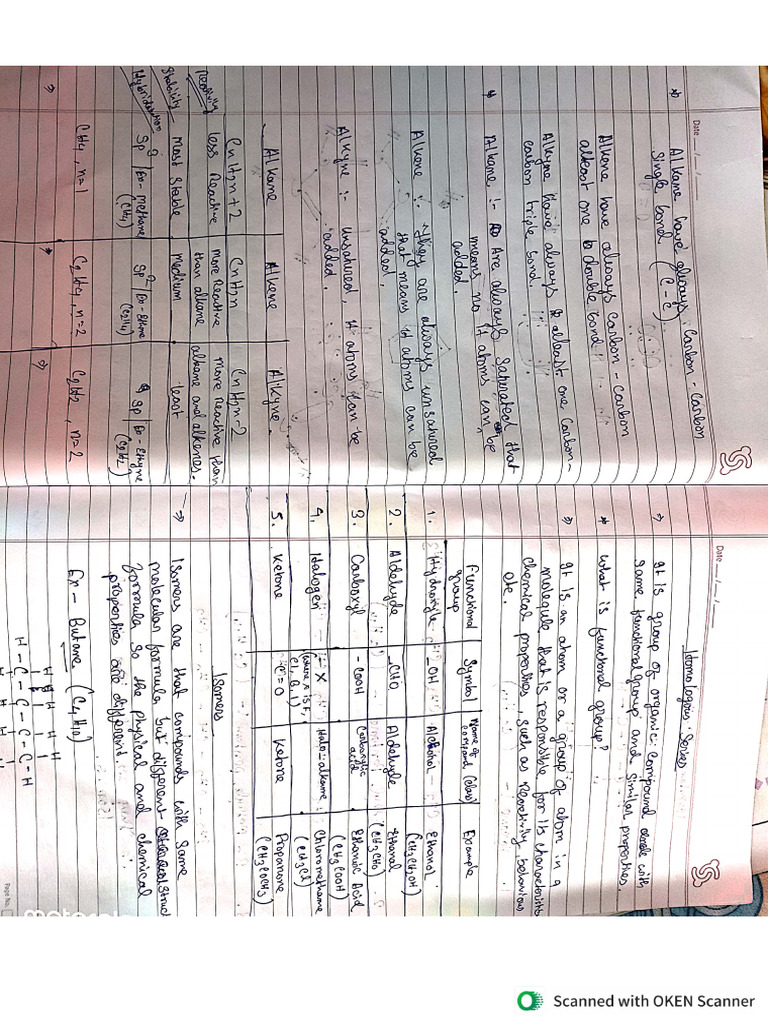 Date __/__/__
Alkane have always Carbon - Carbon
single bond (C-C)
Alkene have always carbon - carbon
atleast one double bond.
Alkyne have always atleast one carbon-
carbon triple bond.
Alkane :- Are always saturated that
means no H atoms can be
added.
Alkene :- They are always unsatured
that means H atoms can be
added.
Alkyne :- Unsatured, H atoms can be
added.
Alkane | Alkene | Alkyne
CnH2n+2 | CnH2n | CnH2n-2
Reactivity less Reactive | more Reactive than alkene | more Reactive than alkane and alkenes.
Stability Most Stable | Medium | least
Hybridisation sp3 | Ex - Methane (CH4) | sp2 | Ex - Ethene (C2H4) | sp | Ex - Ethyne (C2H2)
⇒ CH4, n=1 | C2H4, n=2 | C2H2, n=2
Date __/__/__
Homologous Series
⇒ It is group of organic compound with
same functional group and similar properties.
* What is functional group?
⇒ It is an atom or a group of atom in a
molecule that is responsible for its
chemical properties, such as Reactivity behaviour
etc.
Functional group | Symbol | Name of compound (class) | Example
1. Hydroxyle | -OH | Alcohol | Ethanol (CH3CH2OH)
2. Aldehyde | -CHO | Aldehyde | Ethanal (CH3CHO)
3. Carboxyl | -COOH | Carboxylic acid | Ethanoic Acid (CH3COOH)
4. Halogen | -X (where X is F, Cl, B, I) | Halo-alkane | Chloromethane (CH3Cl)
5. Ketone | -C=O | Ketone | Propanone (CH3COCH3)
Isomers
⇒ Isomers are that compounds with same
molecular formula but different Struc
formula so the physical and chemical
properties are different.
Ex - Butane (C4H10)
H H H H
H-C-C-C-C-H
Page No.
Scanned with OKEN Scanner